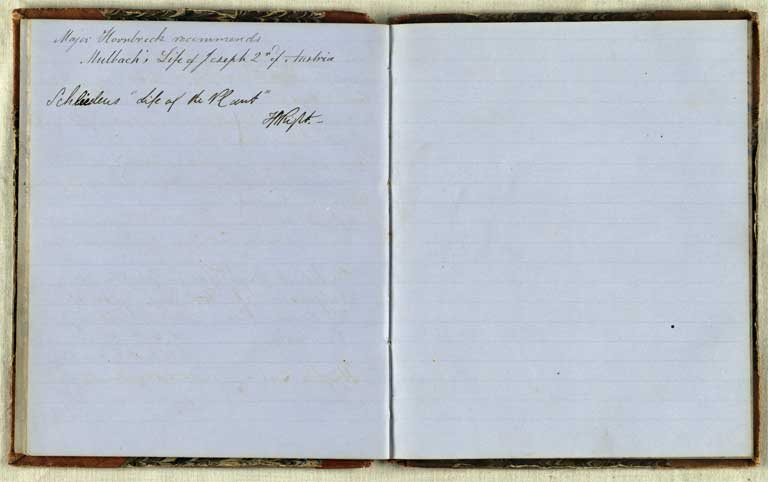 Major Hornbrook recommends
Mulbach's Life of Joseph 2nd of Austria
Schleidens "Life of the Plant"
HWright.